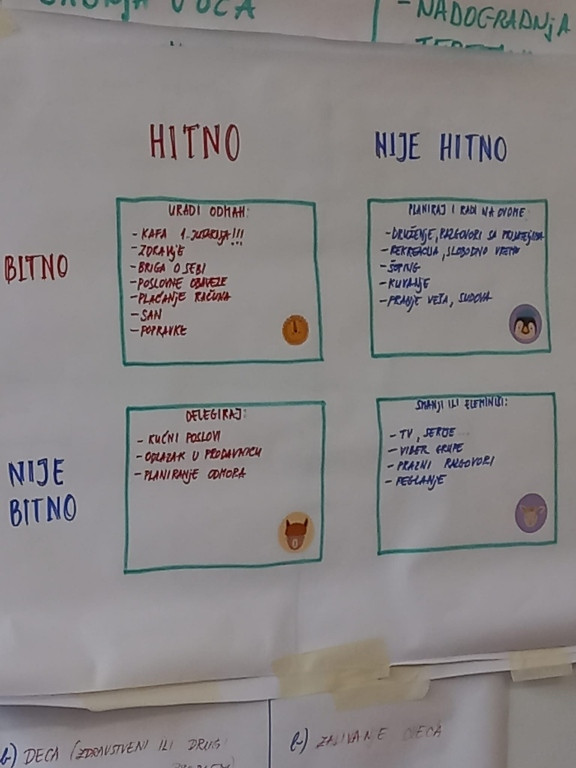 VOĆA
- NADOGRADNJA
HITNO
NIJE HITNO
BITNO
URADI ODMAH:
- KAFA 1. JUTARNJA!!!
- ZDRAVLJE
- BRIGA O SEBI
- POSLOVNE OBAVEZE
- PLAĆANJE RAČUNA
- SAN
- POPRAVKE
PLANIRAJ I RADI NA OVOME:
- DRUŽENJE, RAZGOVORI SA PRIJATELJIMA
- REKREACIJA, SLOBODNO VREME
- ŠOPING
- KUVANJE
- PRANJE VEŠA, SUDOVA
NIJE
BITNO
DELEGIRAJ:
- KUĆNI POSLOVI
- ODLAZAK U PRODAVNICU
- PLANIRANJE ODMORA
SMANJI ILI ELEMINIŠI:
- TV, SERIJE
- VIBER GRUPE
- PRAZNI RAZGOVORI
- PEGLANJE
b) DECA (ZDRAVSTVENI ILI DRUGI
PROBLEM)
b) ZALIVANJE CVEĆA